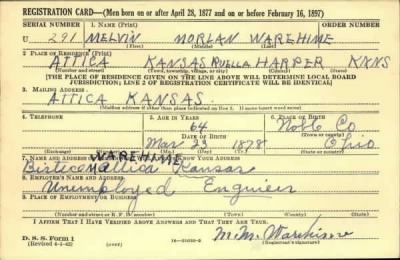 REGISTRATION CARD—(Men born on or after April 28, 1877 and on or before February 16, 1897)
SERIAL NUMBER 1. NAME (Print) ORDER NUMBER
U 291 MELVIN MORLAN WAREHIME
(First) (Middle) (Last)
2. PLACE OF RESIDENCE (Print)
ATTICA KANSAS RUELLA HARPER KANS
(Number and street) (Town, township, village, or city) (County) (State)
[THE PLACE OF RESIDENCE GIVEN ON THE LINE ABOVE WILL DETERMINE LOCAL BOARD
JURISDICTION; LINE 2 OF REGISTRATION CERTIFICATE WILL BE IDENTICAL]
3. MAILING ADDRESS
ATTICA KANSAS.
[Mailing address if other than place indicated on line 2. If same insert word same]
4. TELEPHONE 5. AGE IN YEARS 6. PLACE OF BIRTH
64 Noble Co
DATE OF BIRTH (Town or county)
Mar 23 1878 Ohio
(Exchange) (Number) (Mo.) (Day) (Yr.) (State or country)
7. NAME AND ADDRESS OF PERSON WHO WILL ALWAYS KNOW YOUR ADDRESS
WAREHIME
Attica Kansas
8. EMPLOYER'S NAME AND ADDRESS
Unemployed Engineer
9. PLACE OF EMPLOYMENT OR BUSINESS
(Number and street or R. F. D. number) (Town) (County) (State)
I AFFIRM THAT I HAVE VERIFIED ABOVE ANSWERS AND THAT THEY ARE TRUE.
D. S. S. Form 1
(Revised 4-1-42) M. M. Warehime
(Registrant's signature)